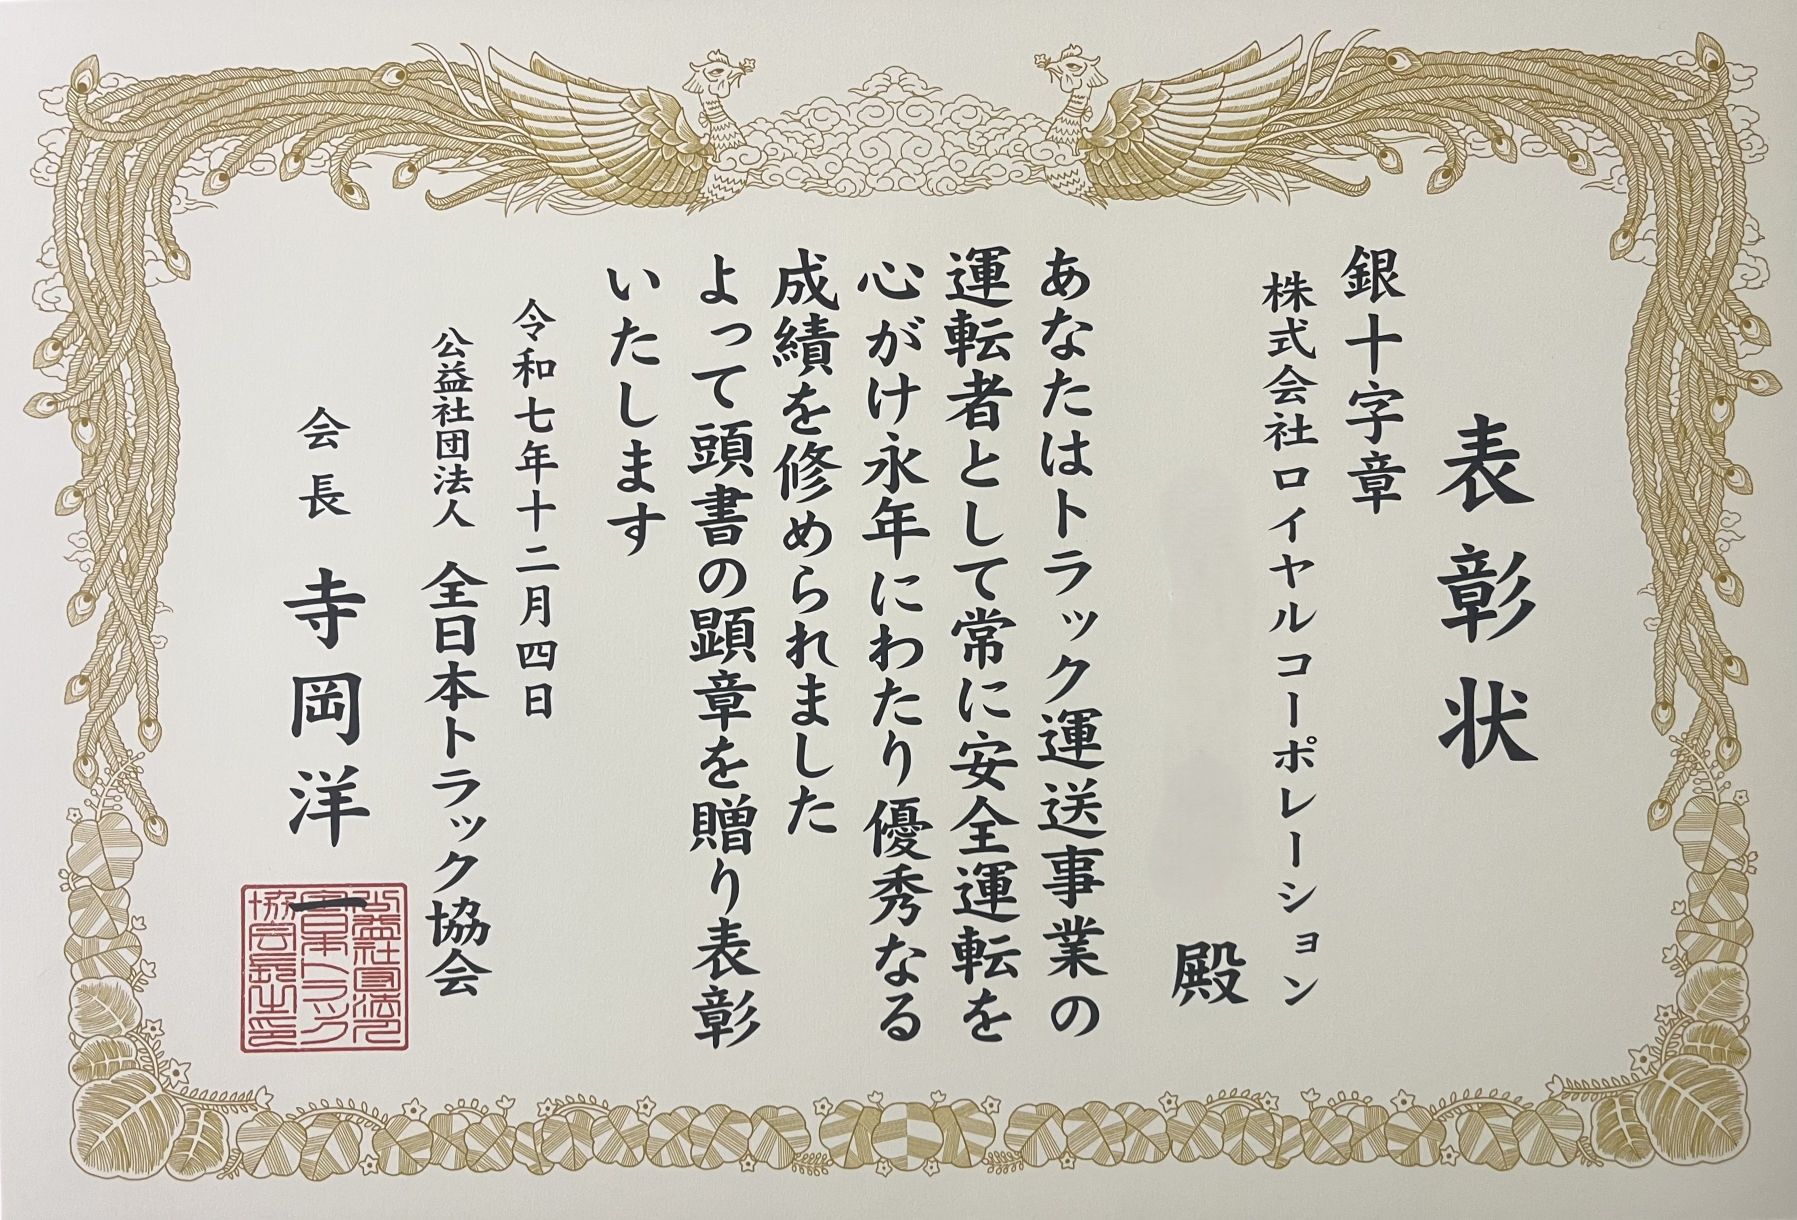 表彰状
銀十字章
株式会社ロイヤルコーポレーション
殿
あなたはトラック運送事業の
運転者として常に安全運転を
心がけ永年にわたり優秀なる
成績を修められました
よって頭書の顕章を贈り表彰
いたします
令和七年十二月四日
公益社団法人 全日本トラック協会
会長 寺岡洋一
公益社団法人
全日本トラック
協会長之印